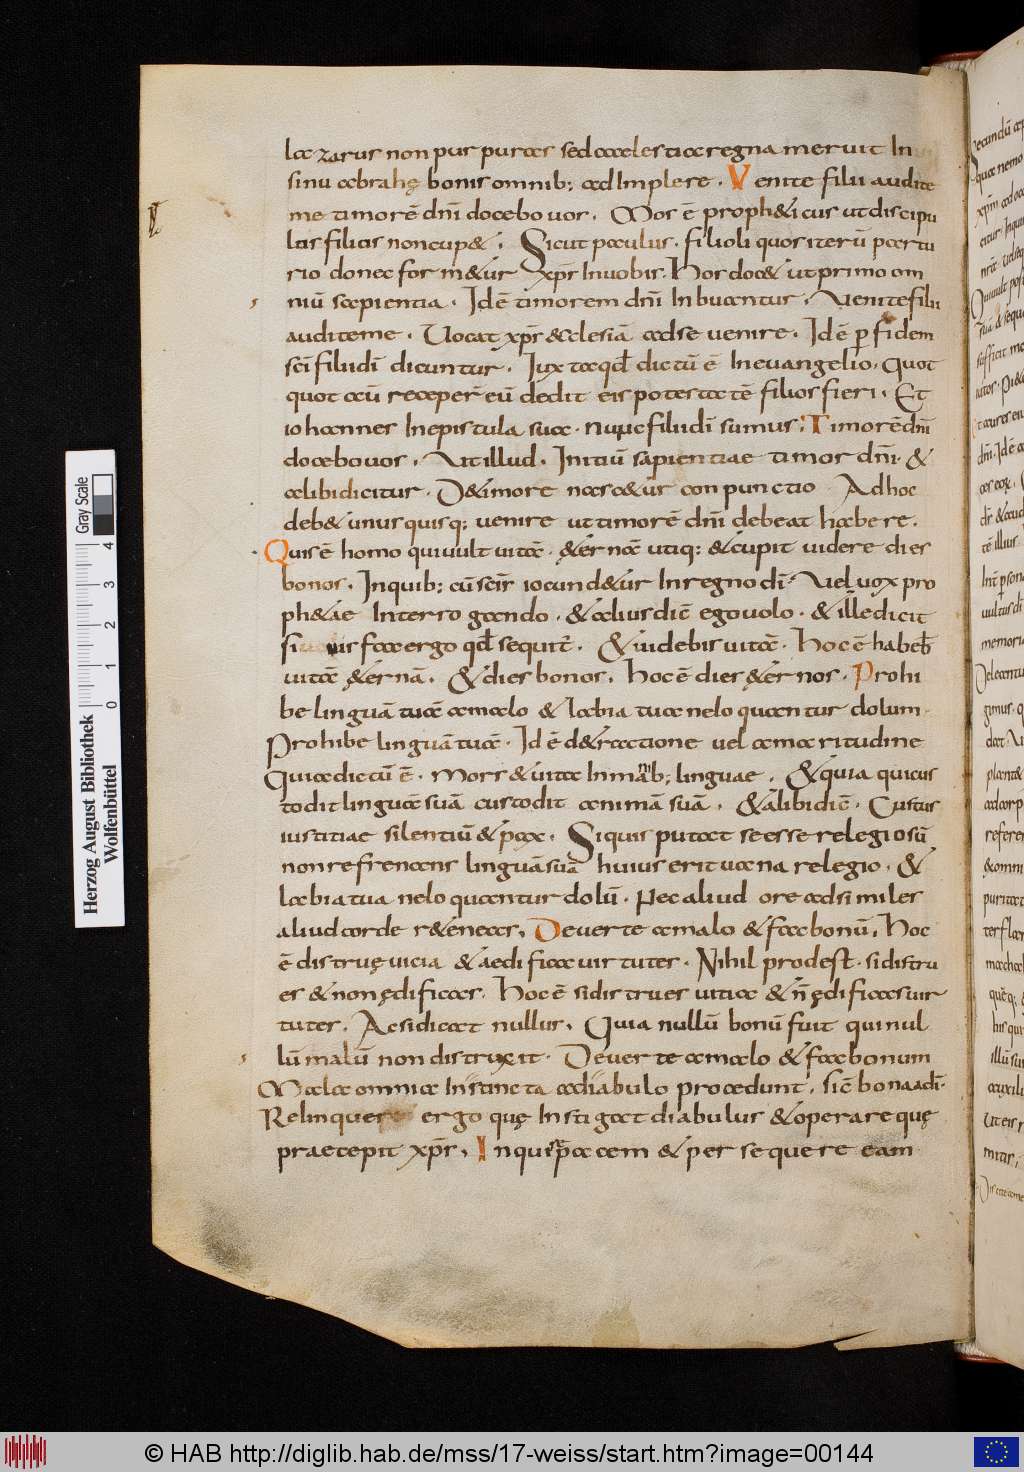 lazarus non purpuras sed caelestia regna meruit In
sinu abrahę bonis omnib; adImplere. Venite filii audite
me timorē dn̄i docebo vos. Mos ē proph&icus ut discipu
los filios noncup&. Sicut paulus. filioli quos iterū partu
rio donec form&ur xp̄s In vobis. Hos doc& ut primo om
niū sapientia. Id ē timorem dn̄i Inbuantur. Venite filii
audite me. Vocat xp̄s &clesiā ad se venire. Id ē p fidem
sc̄i filii dī dicuntur. Iuxta qđ dictū ē In evangelio. Quot
quot aū receper̄ eū dedit eis potestatē filios fieri. Et
iohannes In epistula sua. Nunc filii dī sumus; Timorē dn̄i
docebo vos. Ut illud. Initiū sapientiae timor dn̄i. &
alibi dicitur. D& timore nasc&ur conpunctio Ad hoc
deb& unusquisq; venire ut timorē dn̄i debeat habere.
Quis ē homo qui vult vitā. &ernā utiq; & cupit videre dies
bonos. Inquib; cū sc̄is iocund&ur In regno dī. Vel vox pro
ph&ae Interrogando. & alius dic̄ ego volo. & ille dicit
si vis fac ergo qđ sequitr̄. & videbis vitā. Hoc ē habeb
vitā &ernā. & dies bonos. hoc ē dies &ernos. Prohi
be linguā tuā a malo & labia tua ne loquantur dolum.
Prohibe linguā tuā. Id ē d&ractione vel amaritudine
Quia dictū ē. Mors & vita In manib; linguae. & quia qui cus
todit linguā suā custodit animā suā. & alibi dic̄. Custus
iustitiae silentiū & pax. Si quis putat se esse relegiosū
non refrenans linguā suā huius erit vana relegio. &
labia tua ne loquantur dolū. Nec aliud ore adsimiles
aliud corde r&eneas. Deverte a malo & fac bonū. Hoc
ē distruę vicia & aedifica virtutes. Nihil prodest. si distru
es & non ędificas. Hoc ē si distrues vitia & n̄ ędificas vir
tutes. Ac si dicat nullus. Quia nullū bonū fuit qui nul
lū malū non distruxit. Deverte a malo & fac bonum
Mala omnia Instincta a diabulo procedunt. sic̄ bona a dī.
Relinquere ergo quę Instigat diabulus & operare quę
praecepit xp̄s. Inquire pacem & persequere eam
Gray Scale
0 1 2 3 4
Herzog August Bibliothek
Wolfenbüttel
© HAB http://diglib.hab.de/mss/17-weiss/start.htm?image=00144